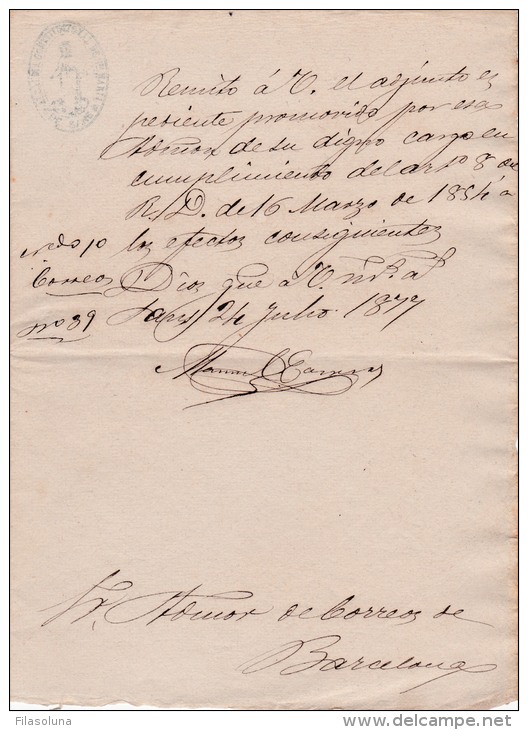 Remito á V. el adjunto es
pediente promovido por esa
Admon de su digno cargo en
cumplimiento del artº 8 del
R. D. de 16 Marzo de 1854 á
los efectos consiguientes
Dios gue á V. ms. as.
24 Julio 1877
Ndo 10
Correos
nº 39
Sr. Admor de Correos de
Barcelona
Filasoluna
delcampe.net